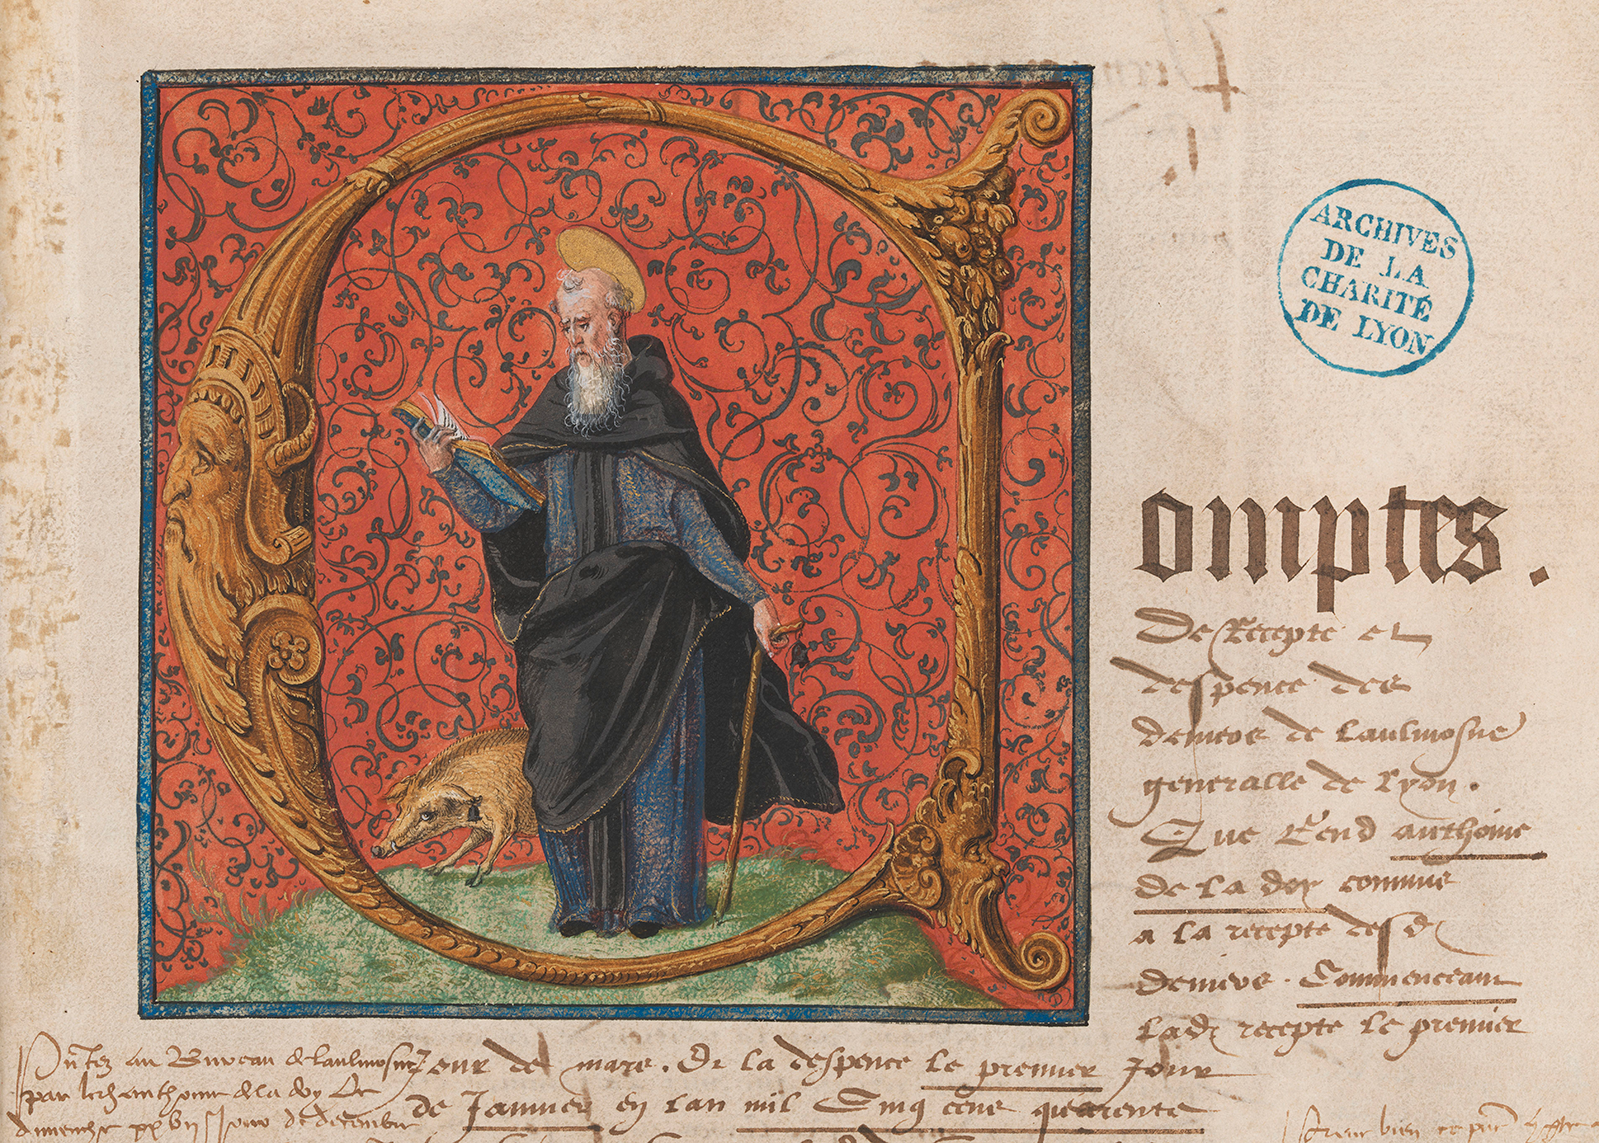 ARCHIVES
DE LA
CHARITÉ
DE LYON
Comptes.
De Recepte et
despence des
deniers de laulmosne
generalle de Lyon.
Que Rend anthoine
de la doy commis
a la recepte desd
deniers. Commenceant
lad recepte le premier
Jour de mars. Et la despence le premier Jour
de Janvier en lan mil Cinq cens quarente
au Bureau de laulmosne
par anthoine de la doy Le
dimenche jour de decembre